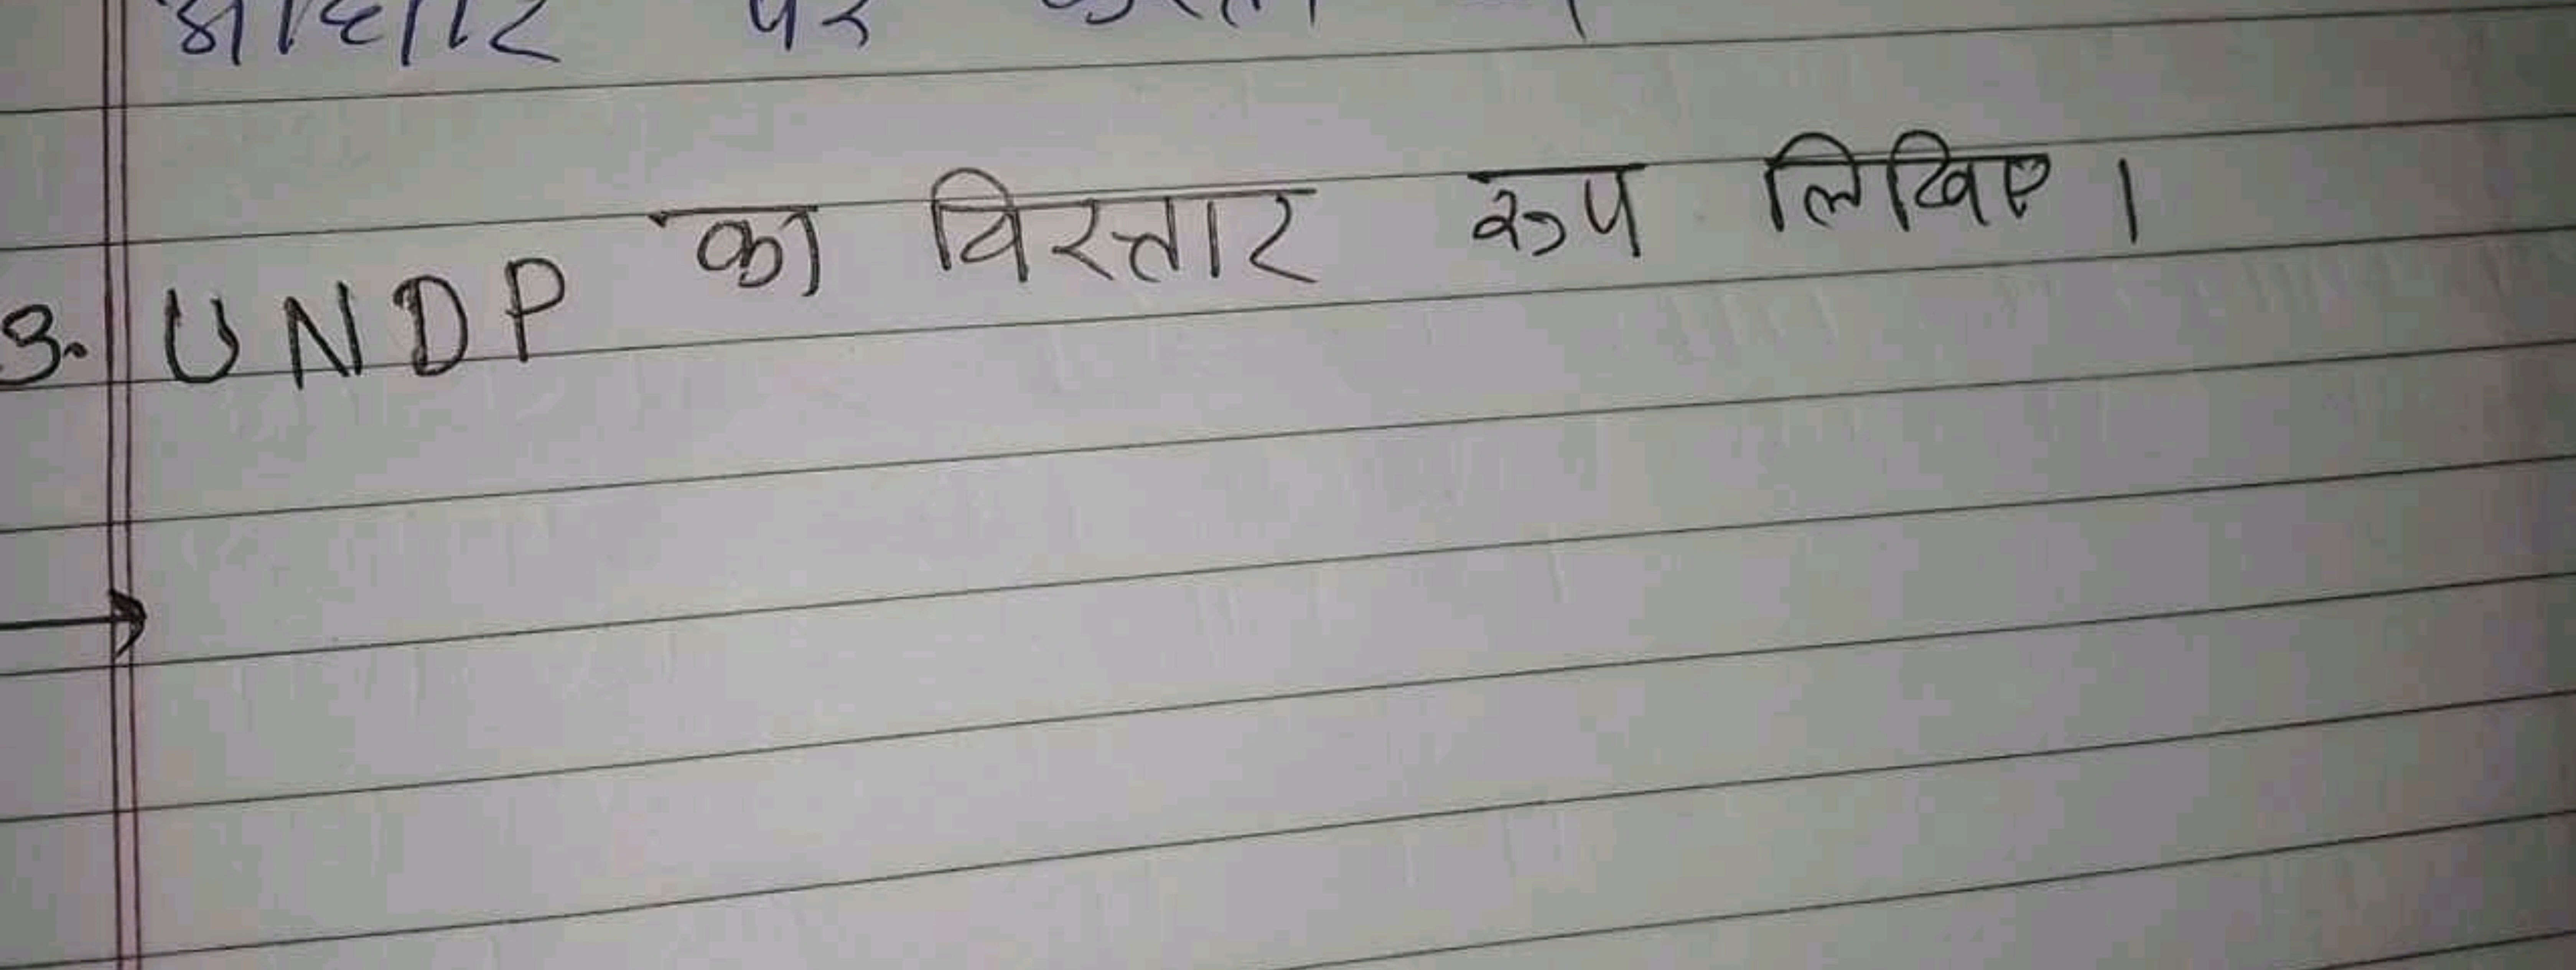 पर
3. UNDP का विस्तार रूप लिखिए।